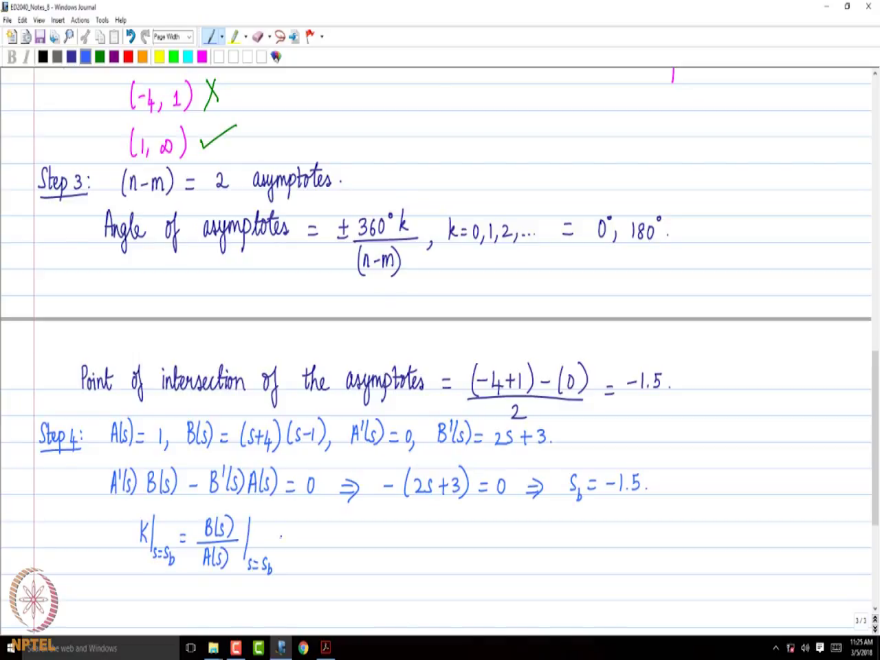 ED2040_Notes_8 - Windows Journal
File Edit View Insert Actions Tools Help
Page Width
B I
(-4, 1) X
(1, ∞) ✓
Step 3: (n-m) = 2 asymptotes.
Angle of asymptotes = ± 360° k / (n-m) , k=0,1,2,... = 0°, 180°.
Point of intersection of the asymptotes = (-4+1) - (0) / 2 = -1.5.
Step 4: A(s) = 1, B(s) = (s+4)(s-1), A'(s) = 0, B'(s) = 2s+3.
A'(s) B(s) - B'(s) A(s) = 0 ⇒ -(2s+3) = 0 ⇒ S_b = -1.5.
K|_{s=s_b} = B(s)/A(s) |_{s=s_b}
3 / 3
NPTEL
the web and Windows
11:25 AM
3/5/2018